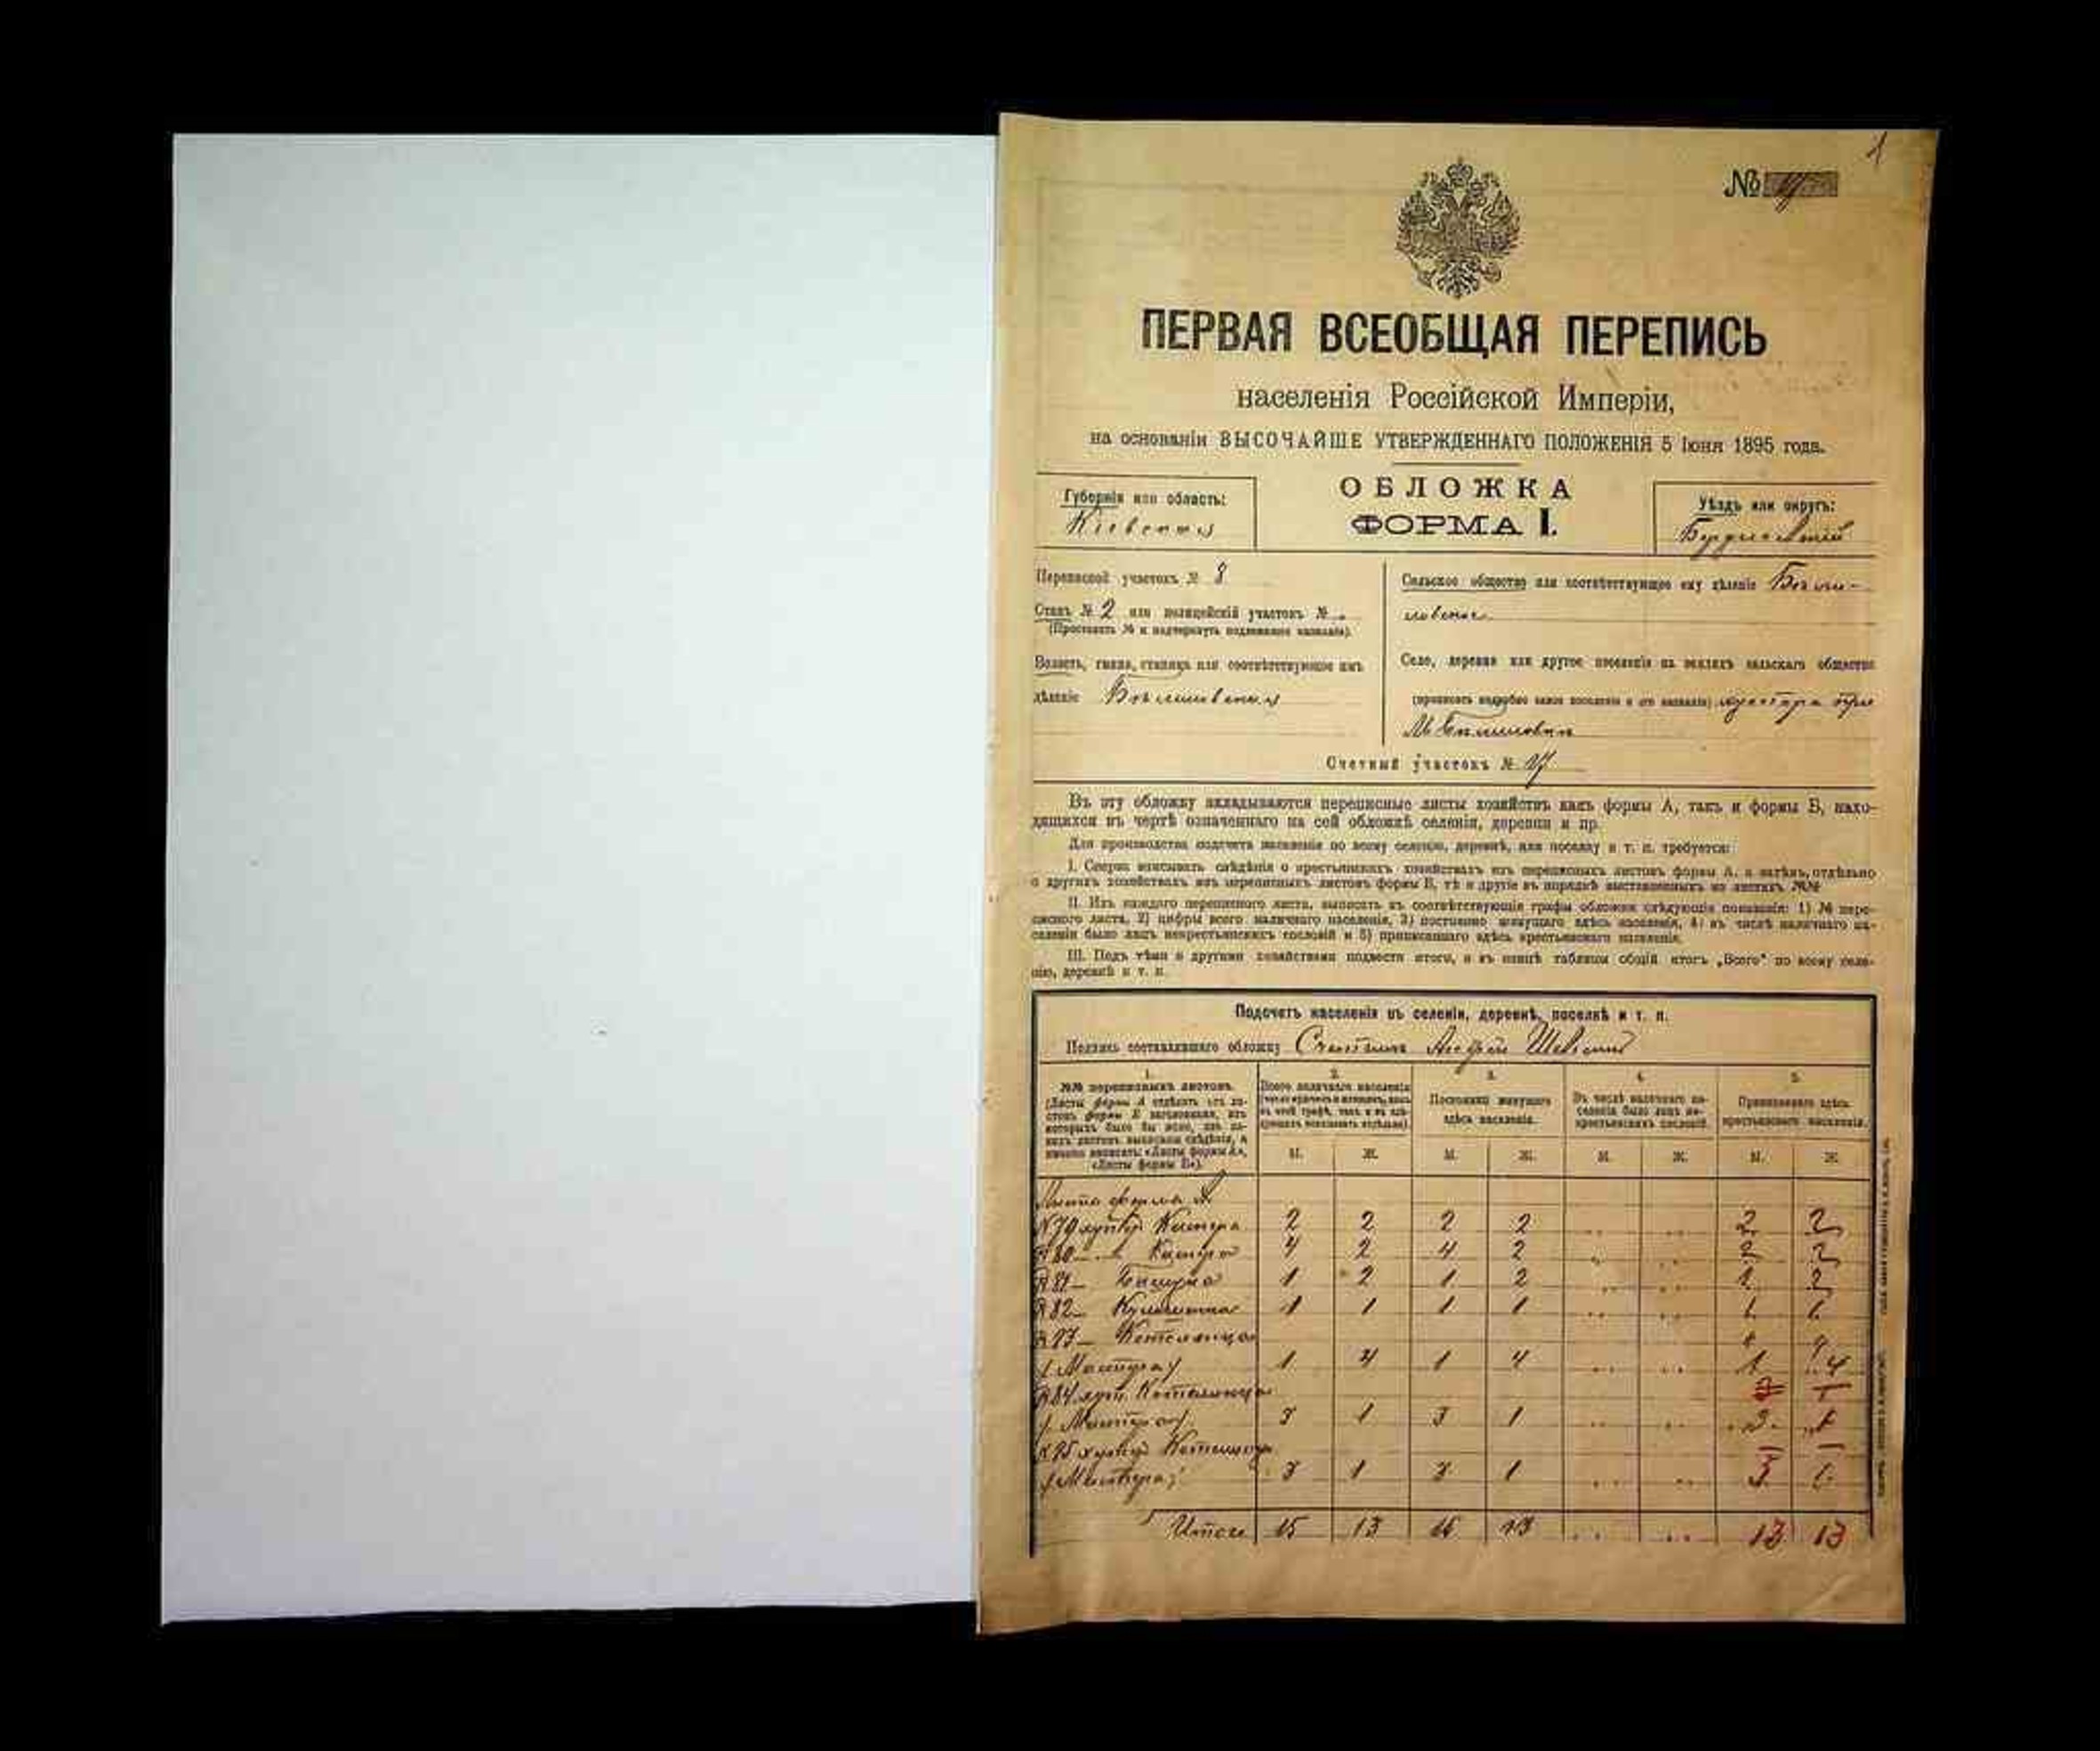 1
№
ПЕРВАЯ ВСЕОБЩАЯ ПЕРЕПИСЬ
населенія Россійской Имперіи,
на основаніи ВЫСОЧАЙШЕ УТВЕРЖДЕННАГО ПОЛОЖЕНІЯ 5 Іюня 1895 года.
ОБЛОЖКА
ФОРМА I.
Губернія или область:
Кіевская
Уѣздъ или округъ:
Бердичевскій
Переписной участокъ № 8
Станъ № 2 или полицейскій участокъ №
(Проставить № и подчеркнуть подлежащее названіе).
Волость, гмина, станица или соотвѣтствующее имъ
дѣленіе
Сельское общество или соотвѣтствующее ему дѣленіе
Село, деревня или другое поселеніе на земляхъ сельскаго общества
(прописать подробно какое поселеніе и его названіе) хутора при
Счетный участокъ №
Въ эту обложку вкладываются переписные листы хозяйствъ какъ формы А, такъ и формы Б, нахо-
дящихся въ чертѣ означеннаго на сей обложкѣ селенія, деревни и пр.
Для производства подсчета населенія по всему селенію, деревнѣ, или поселку и т. п. требуется:
I. Сперва вписывать свѣдѣнія о крестьянскихъ хозяйствахъ изъ переписныхъ листовъ формы А, а затѣмъ, отдѣльно
о другихъ хозяйствахъ изъ переписныхъ листовъ формы Б, тѣ и другіе въ порядкѣ выставленныхъ на листахъ №№
II. Изъ каждаго переписного листа, выписать въ соотвѣтствующія графы обложки слѣдующія показанія: 1) № пере-
писного листа, 2) цифры всего наличнаго населенія, 3) постоянно живущаго здѣсь населенія, 4) въ числѣ наличнаго на-
селенія было лицъ некрестьянскихъ сословій и 5) приписаннаго здѣсь крестьянскаго населенія.
III. Подъ тѣми и другими хозяйствами подвести итого, а въ концѣ таблицы общій итогъ „Всего" по всему селе-
нію, деревнѣ и т. п.
Подсчетъ населенія въ селеніи, деревнѣ, поселкѣ и т. п.
Подпись составлявшаго обложку Счетчикъ Андрей
1. 2. 3. 4. 5.
№№ переписныхъ листовъ.
(Листы формы А отдѣлить отъ ли-
стовъ формы Б заголовками, изъ
которыхъ было бы ясно, изъ ка-
кихъ листовъ выписаны свѣдѣнія, а
именно написать: «Листы формы А»,
«Листы формы Б»).
Всего наличнаго населенія
Постоянно живущаго
здѣсь населенія.
Въ числѣ наличнаго на-
селенія было лицъ не-
крестьянскихъ сословій.
Приписаннаго здѣсь
крестьянскаго населенія.
М. Ж. М. Ж. М. Ж. М. Ж.
Листы формы А
№79 2 2 2 2 2 2
№80 4 2 4 2 2 2
№81 1 2 1 2 1 2
№82 1 1 1 1 1 1
1 4 1 4 1 4
№84
3 1 3 1 3 1
3 1 3 1 3 1
Итого 15 13 15 13 13 13